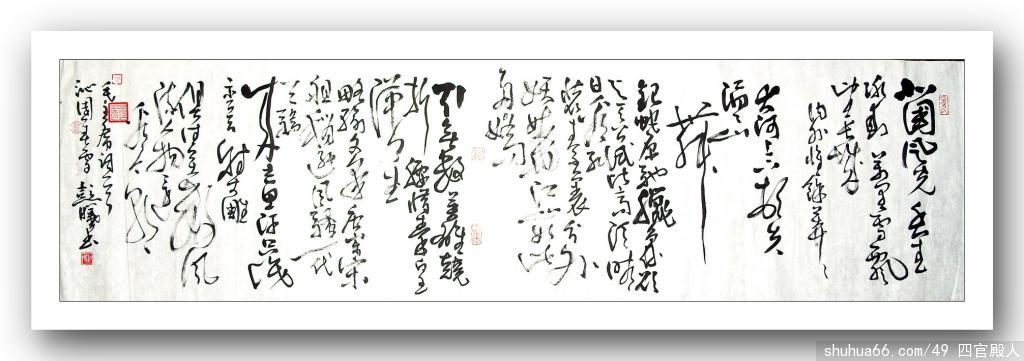 北國风光 千里
冰封 万里雪飘
望长城
内外 惟余莽
大河上下 顿失
滔滔
舞
银蛇 原驰蜡象 欲
与天公试比高 须晴
日 看红
装素裹 分外
妖娆 江山如此
多娇
引无数英雄竞
折腰 惜秦皇
汉武
略输文采 唐宗宋
祖 稍逊风骚 一代
天骄
成吉思汗 只识
射大雕
俱往矣 数风
流人物 还
看今朝
毛主席词
沁园春雪 彭曦书
shuhua66.com/49 四官殿人